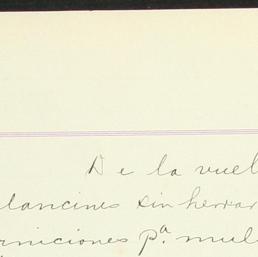 De la vuel
lancines sin herrar
rniciones pª mul